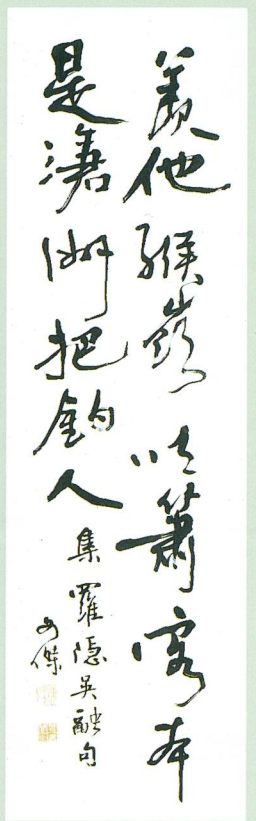 羨他緱嶺吹簫客本
是滄洲把釣人
集羅隱吳融句
傑